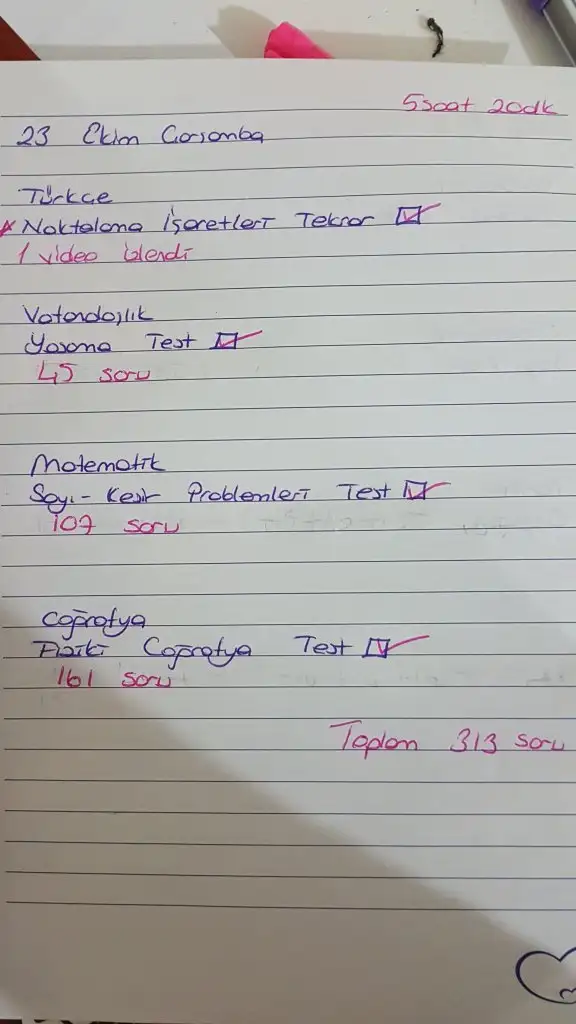 5 saat 20dk
23 Ekim Çarşamba
Türkçe
* Noktalama İşaretleri Tekrar
1 video izlendi
Vatandaşlık
Yasama Test
45 soru
Matematik
Sayı - Kesir Problemleri Test
107 soru
Coğrafya
Fiziki Coğrafya Test
161 soru
Toplam 313 soru